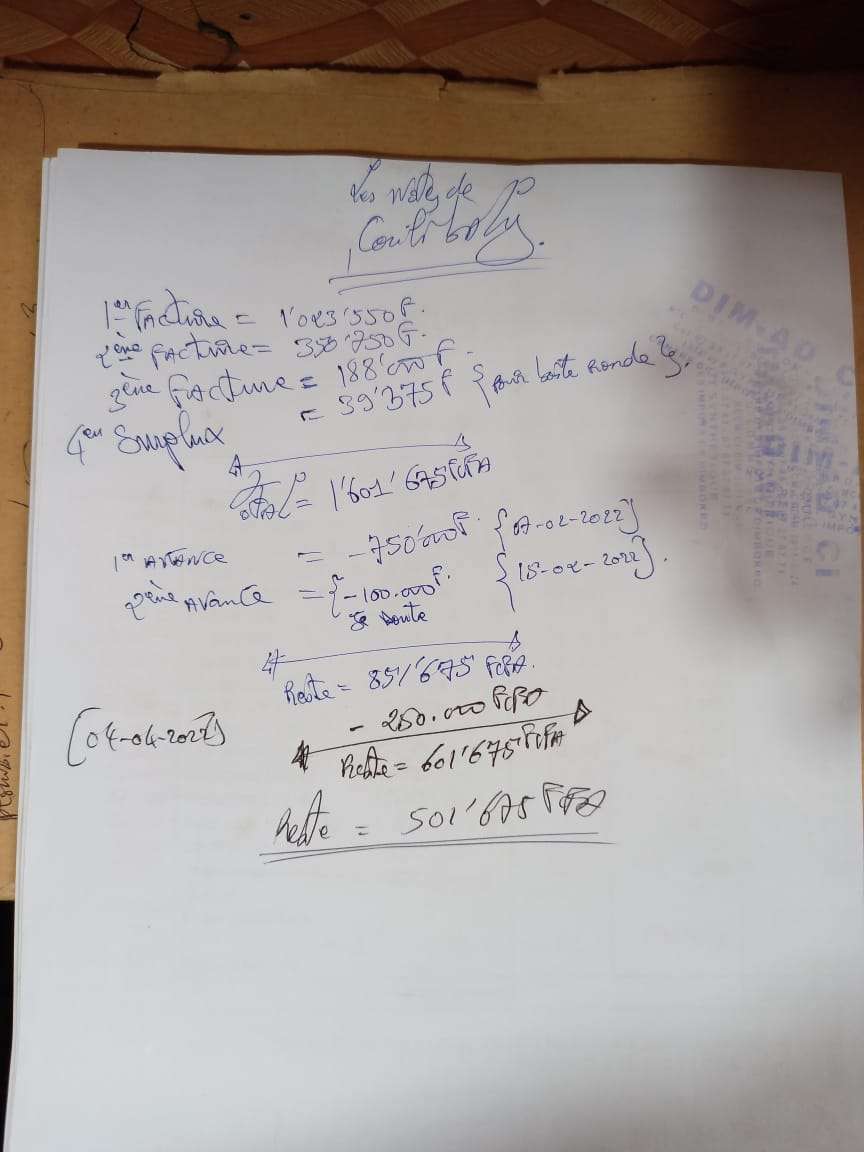 Les Notes de
Coulibaly.
1er Facture = 1'023'550 F.
2ème Facture = 350'750 F.
3ème Facture = 188'000 F.
4er Surplux = 39'375 F { pour boîte ronde }.
Total = 1'601'675 FCFA
1er Avance = -750'000 F. { 07-02-2022 }
2ème Avance = { -100.000 F. { 15-02-2022 }.
Reste = 851'675 FCFA.
[04-04-2022] - 250.000 FCFA
Reste = 601'675 FCFA
Reste = 501'675 FCFA
DIM-AD C